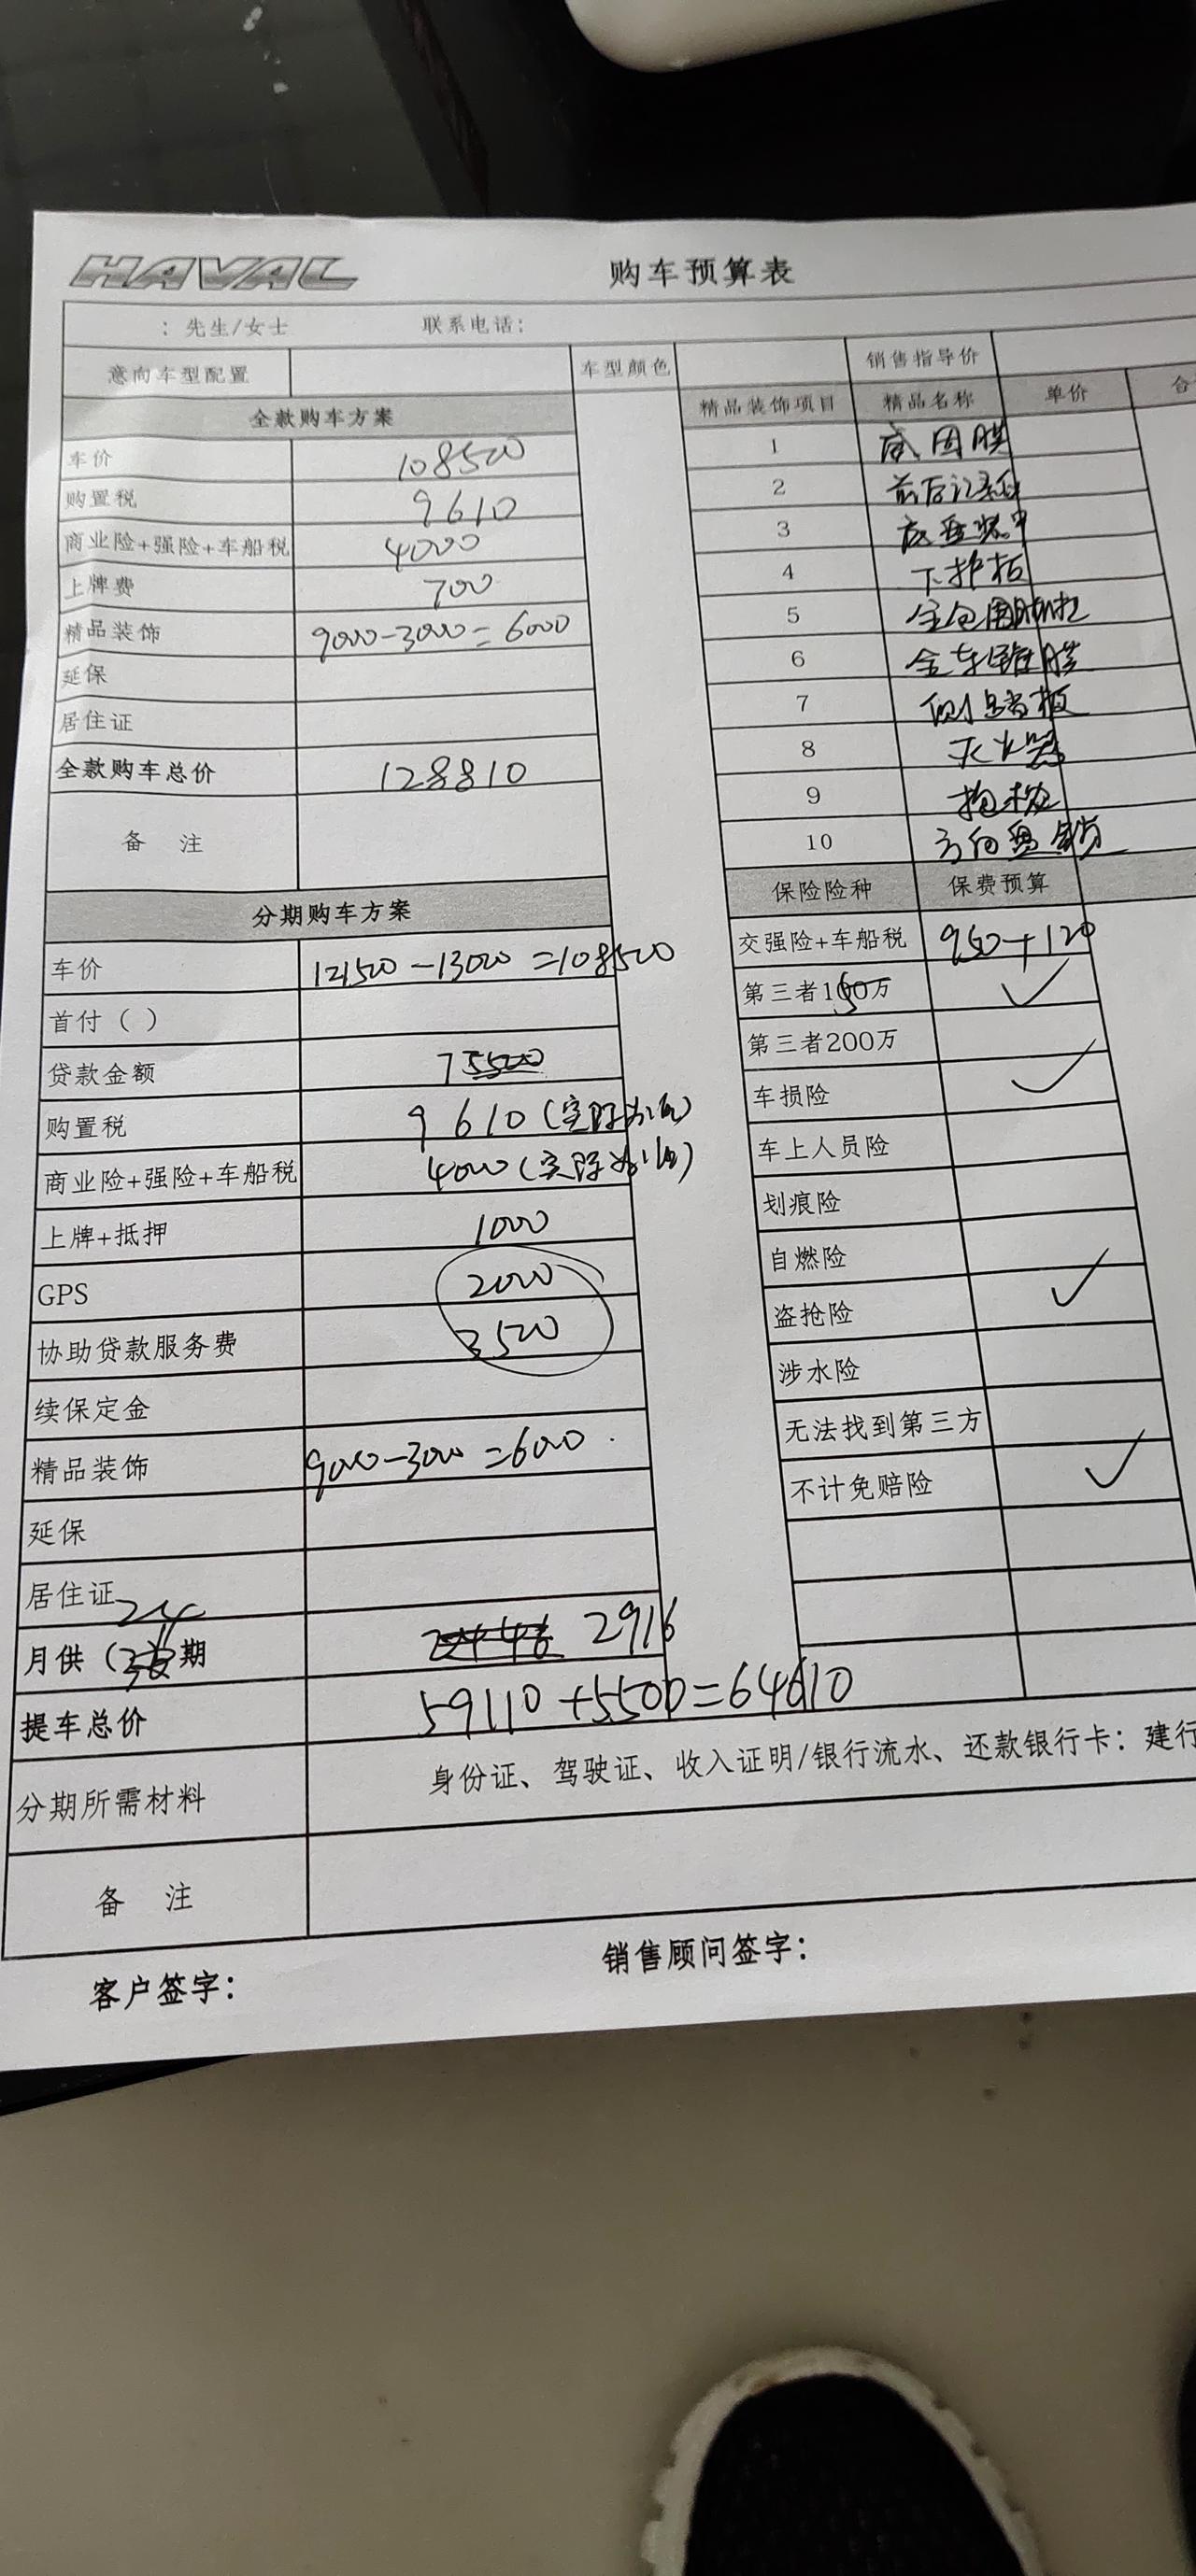 HAVAL 购车预算表
：先生/女士 联系电话：
意向车型配置 车型颜色 销售指导价
全款购车方案 精品装饰项目 精品名称 单价 合
车价 108500
购置税 9610
商业险+强险+车船税 4000
上牌费 700
精品装饰 9000-3000=6000
延保
居住证
全款购车总价 128810
备 注
1 威固膜
2 前后记录仪
3 底盘装甲
4 下护板
5 全包围脚垫
6 全车镀膜
7 侧踏板
8 灭火器
9 抱枕
10 方向盘套
分期购车方案
车价 121500-13000=108500
首付（ ）
贷款金额 75500
购置税 9610(实际为准)
商业险+强险+车船税 4000(实际为准)
上牌+抵押 1000
GPS 2000
协助贷款服务费 3500
续保定金
精品装饰 9000-3000=6000
延保
居住证
月供（ 24 期 2916
提车总价 59110+5500=64610
分期所需材料 身份证、驾驶证、收入证明/银行流水、还款银行卡：建行
备 注
保险险种 保费预算
交强险+车船税 950+120
第三者150万 ✓
第三者200万
车损险 ✓
车上人员险
划痕险
自燃险
盗抢险 ✓
涉水险
无法找到第三方
不计免赔险 ✓
客户签字： 销售顾问签字：